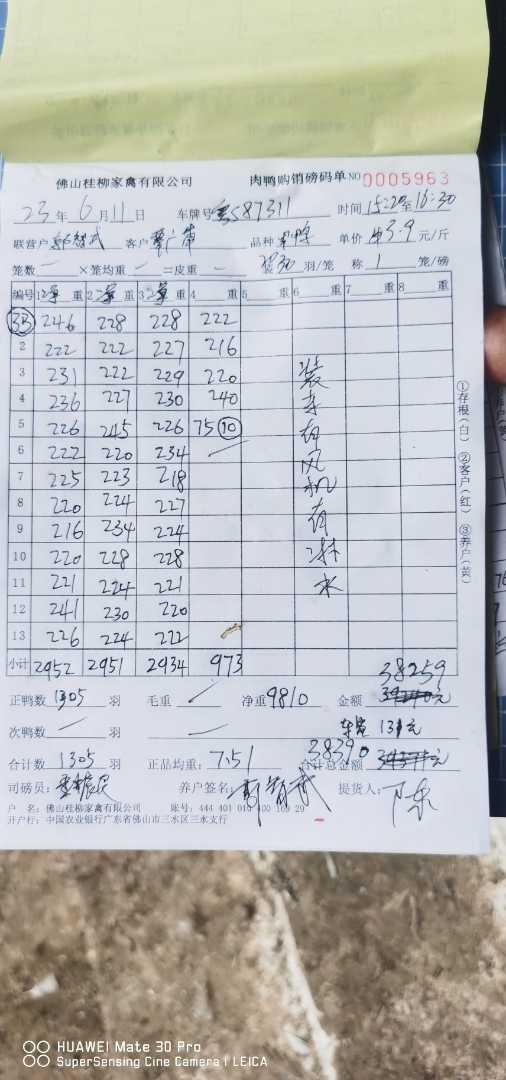 佛山桂柳家禽有限公司 肉鸭购销磅码单 NO 0005963
23年6月11日 车牌号 587311 时间 15:20至16:30
联营户 客户 品种 单价 3.9 元/斤
笼数 一 ×笼均重 一 =皮重 一 装30 羽/笼 称 1 笼/磅
编号 1 重 2 重 3 重 4 重 5 重 6 重 7 重 8 重
33 246 228 228 222
2 222 222 227 216
3 231 222 229 220
4 236 227 230 240
5 226 245 226 75 10
6 222 220 234
7 225 223 218
8 220 224 227
9 216 234 224
10 220 228 228
11 221 224 221
12 241 230 220
13 226 224 222
装车有风机有淋水
小计 2952 2951 2934 973
38259
正鸭数 1305 羽 毛重 净重 9810 金额 元
次鸭数 一 羽 一 车装 131元
合计数 1305 羽 正品均重: 7.51 合计总金额 38390 元
司磅员: 养户签名: 提货人:
户 名: 佛山桂柳家禽有限公司 账号: 444 401 010 400 169 29
开户行: 中国农业银行广东省佛山市三水区三水支行
①存根(白) ②客户(红) ③养户(黄)
HUAWEI Mate 30 Pro
SuperSensing Cine Camera | LEICA